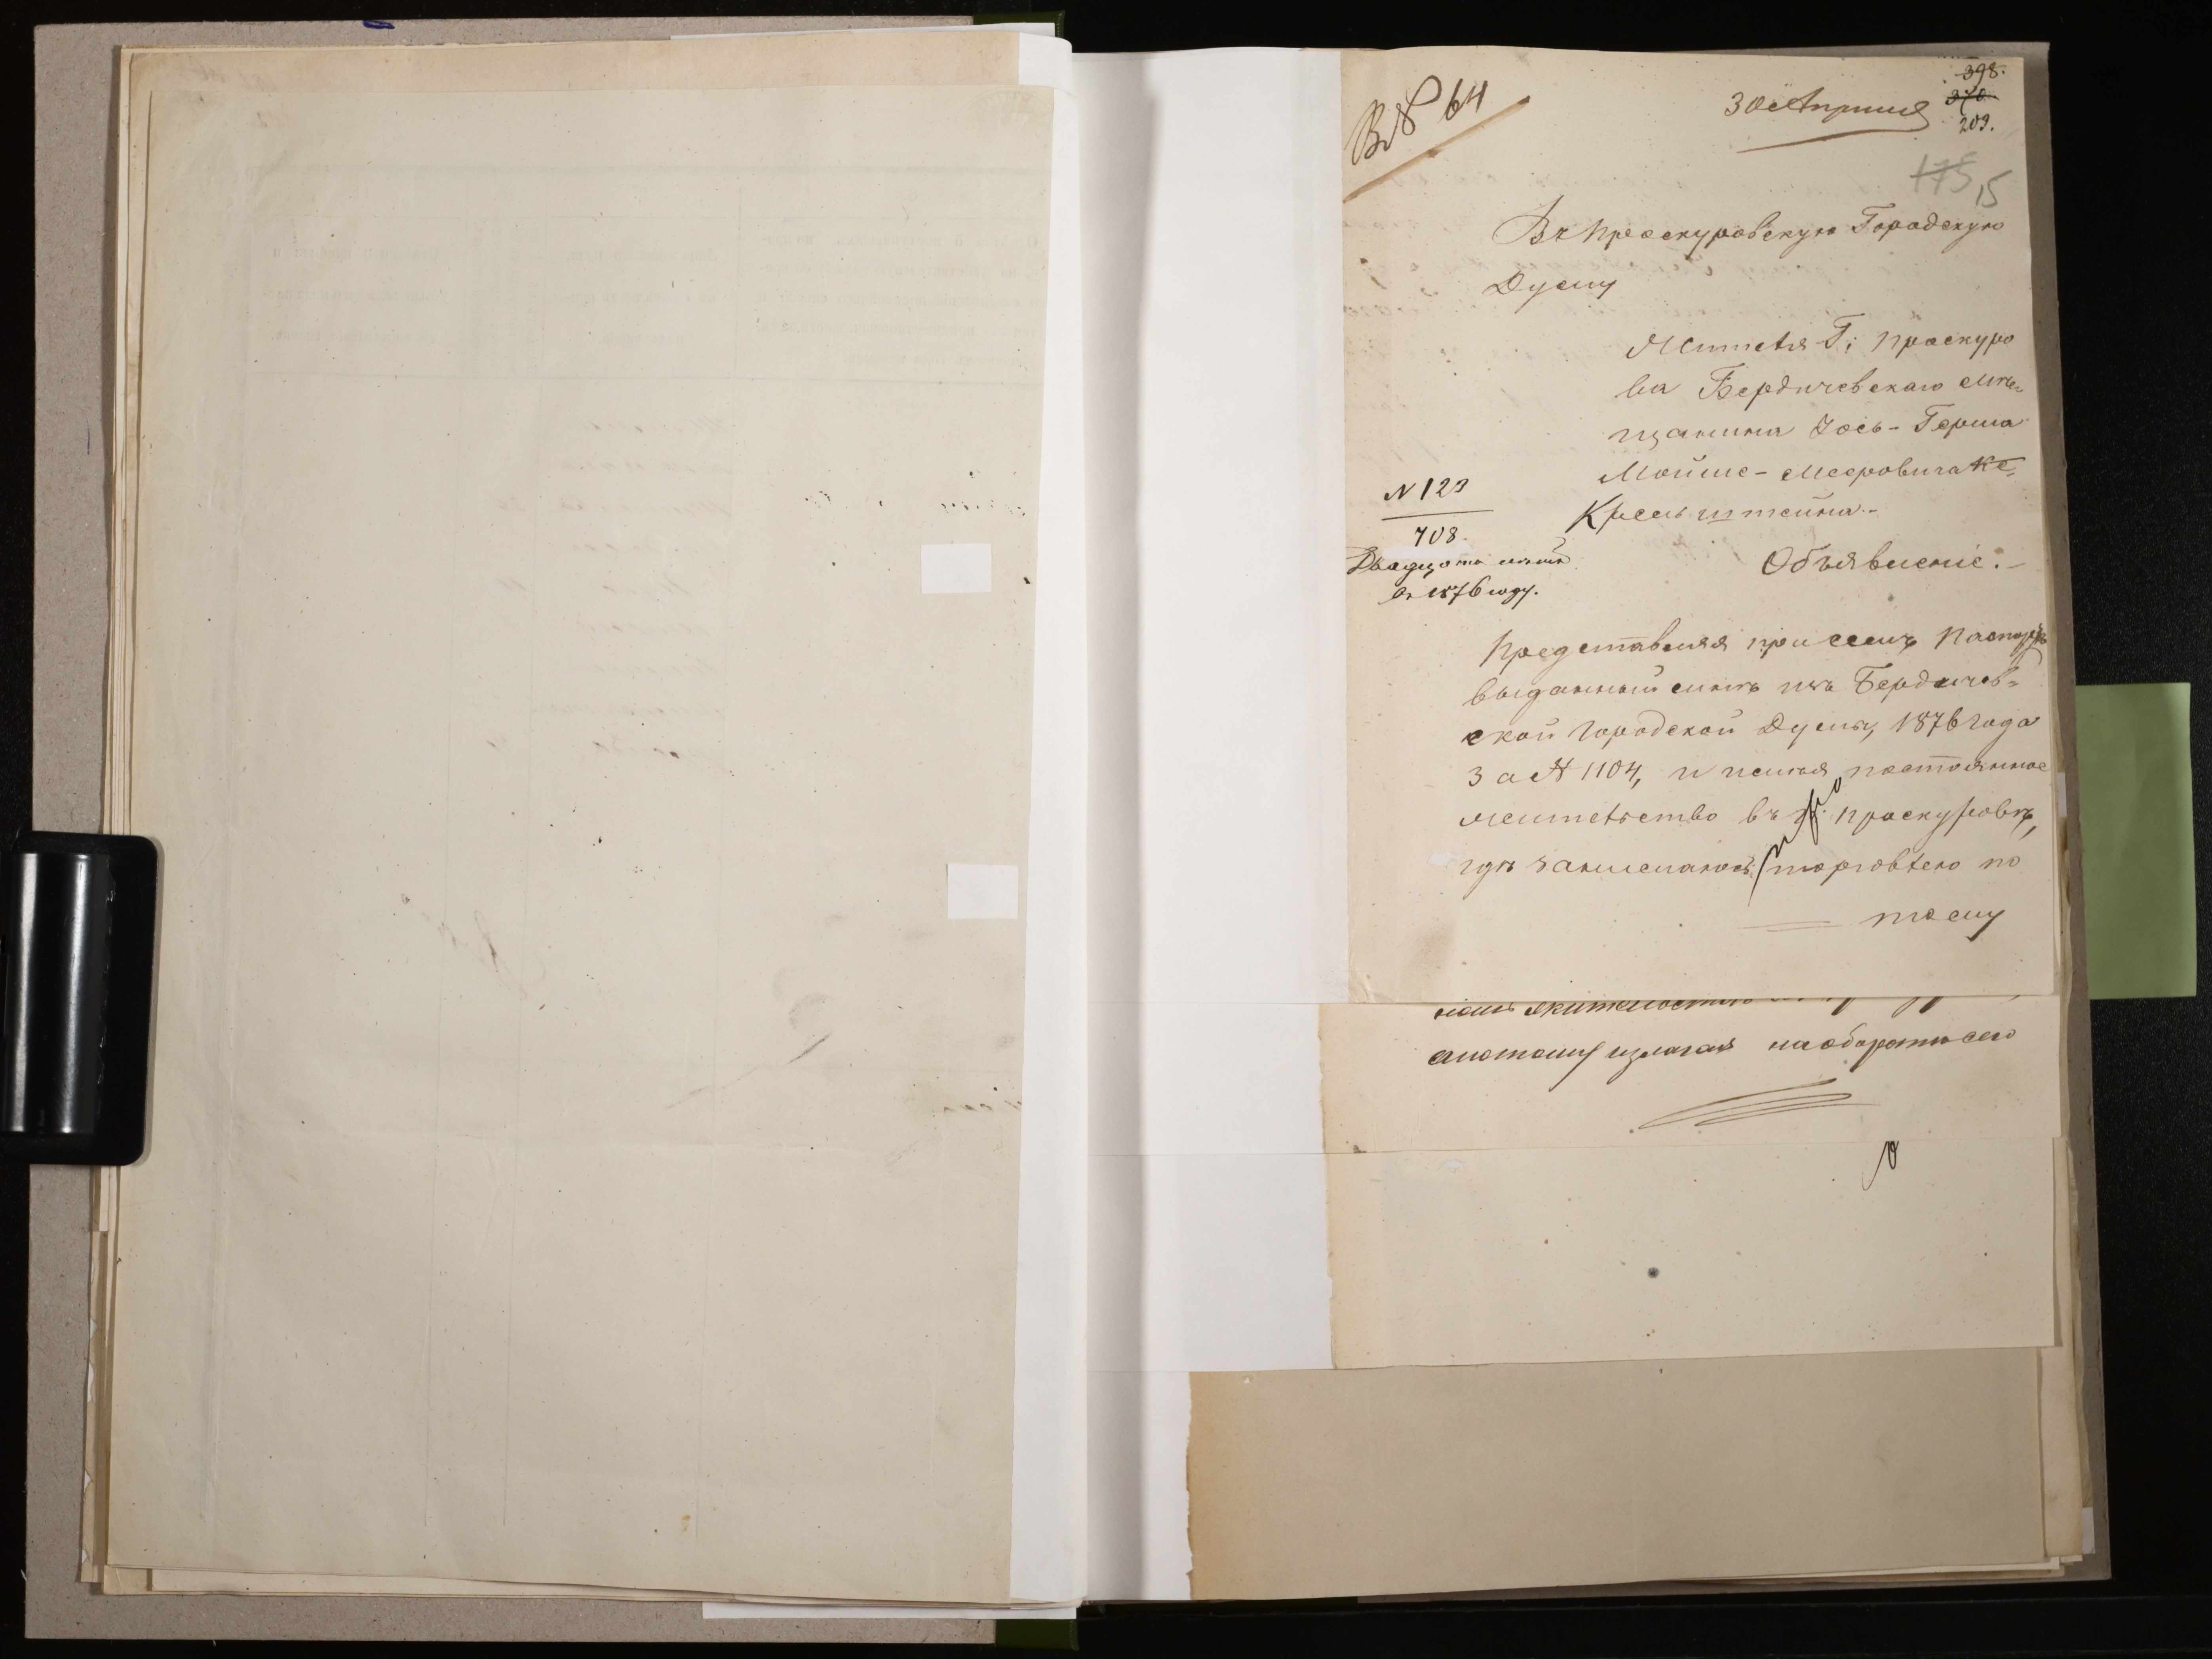 В № 64
30 Апреля
398.
370
209.
175 15
Въ Проскуровскую Городскую
Думу
Жителя Г: Проскуро
ва Бердичевскаго Мѣ-
щанина Іось-Герша
Мойше-Мееровича Ке-
Крельштейна.-
Объявленіе.-
N 129
708.
въ 1876 году.
Представляя при семъ Паспортъ
выданный мнѣ изъ Бердичев=
ской Городской Думы, 1876 года
За № 1104, и имѣя постоянное
жительство въ г. Проскуровѣ,
гдѣ занимаюсь торговлею по
тому
жительство
а потому излагая на оборотѣ сего